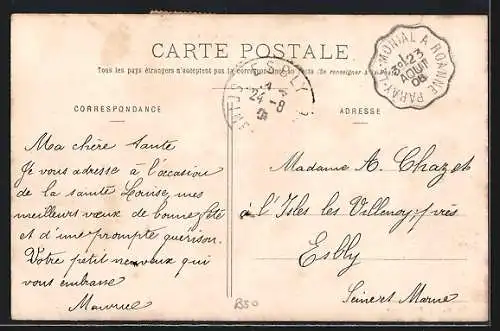 CARTE POSTALE
Tous les pays étrangers n'acceptent pas la correspondance au recto (Se renseigner à la Poste)
CORRESPONDANCE
ADRESSE
PARAY-L-MONIAL A ROANNE
23
AOUT
08
ESBLY
24 -8
Ma chère tante
Je vous adresse à l'occasion
de la sainte Louise, mes
meilleurs vœux de bonne fête
et d'une prompte guérison.
Votre petit neuveux qui
vous embrasse
Maurice
Madame A. Chazet
à l'Isles les Villenoy près
Esbly
Seine et Marne
B50